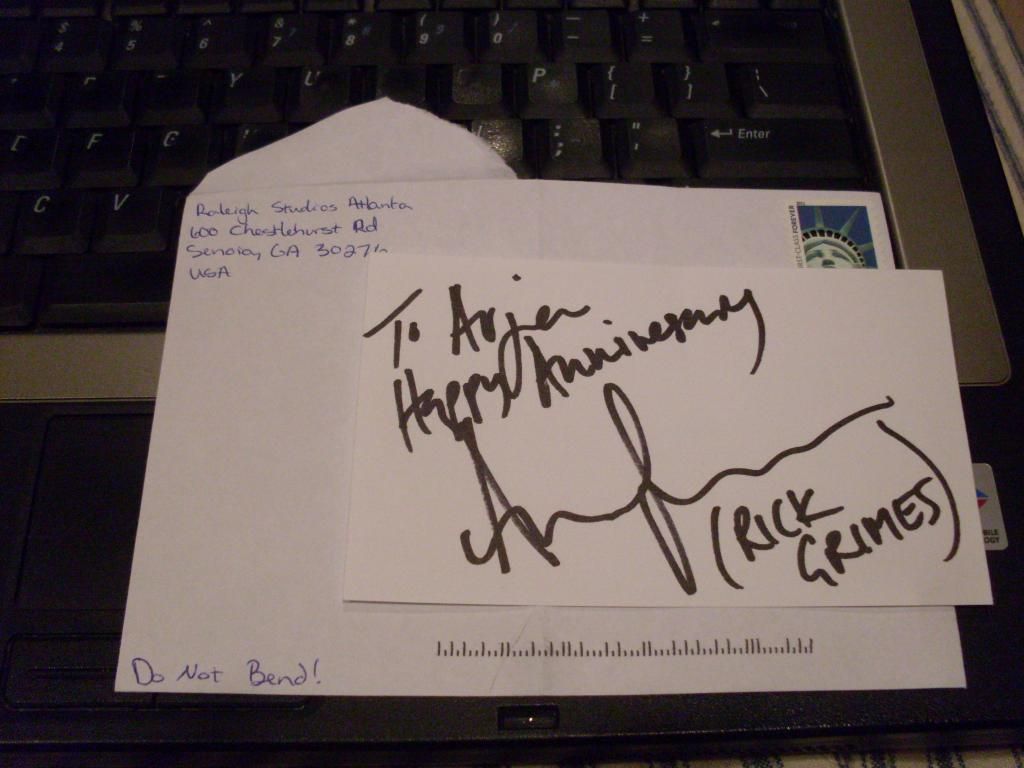 $ % ^ & * ( ) _ +
4 5 6 7 8 9 0 - =
Y U P { } |
[ ] \
F G : "
; ' Enter
C V
Raleigh Studios Atlanta
600 Chestlehurst Rd
Senoia, GA 30276
USA
FIRST-CLASS FOREVER
To Arjen
Happy Anniversary
(RICK
GRIMES)
Do Not Bend!